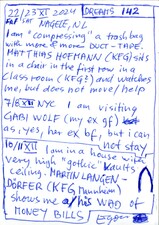 22/23 XII 2024 DREAMS 142
FRI/SAT NAGELE, NL
I am "compressing" a trash bag
with more & more DUCT-TAPE.
MATTHIAS HOFFMANN (KFG) sits
in a chair in the first row in a
class room (KFG) and watches
me, but does not move / help
7/8 XII NYC I am visiting
GABI WOLF (my ex gf)
as, yes, her ex bf, but i can
not stay
10/11 XII I am in a house with
very high "gothic" vaults
ceiling. MARTIN LANGEN-
DÖRFER (KFG Mannheim)
shows me his WAD of
MONEY BILLS